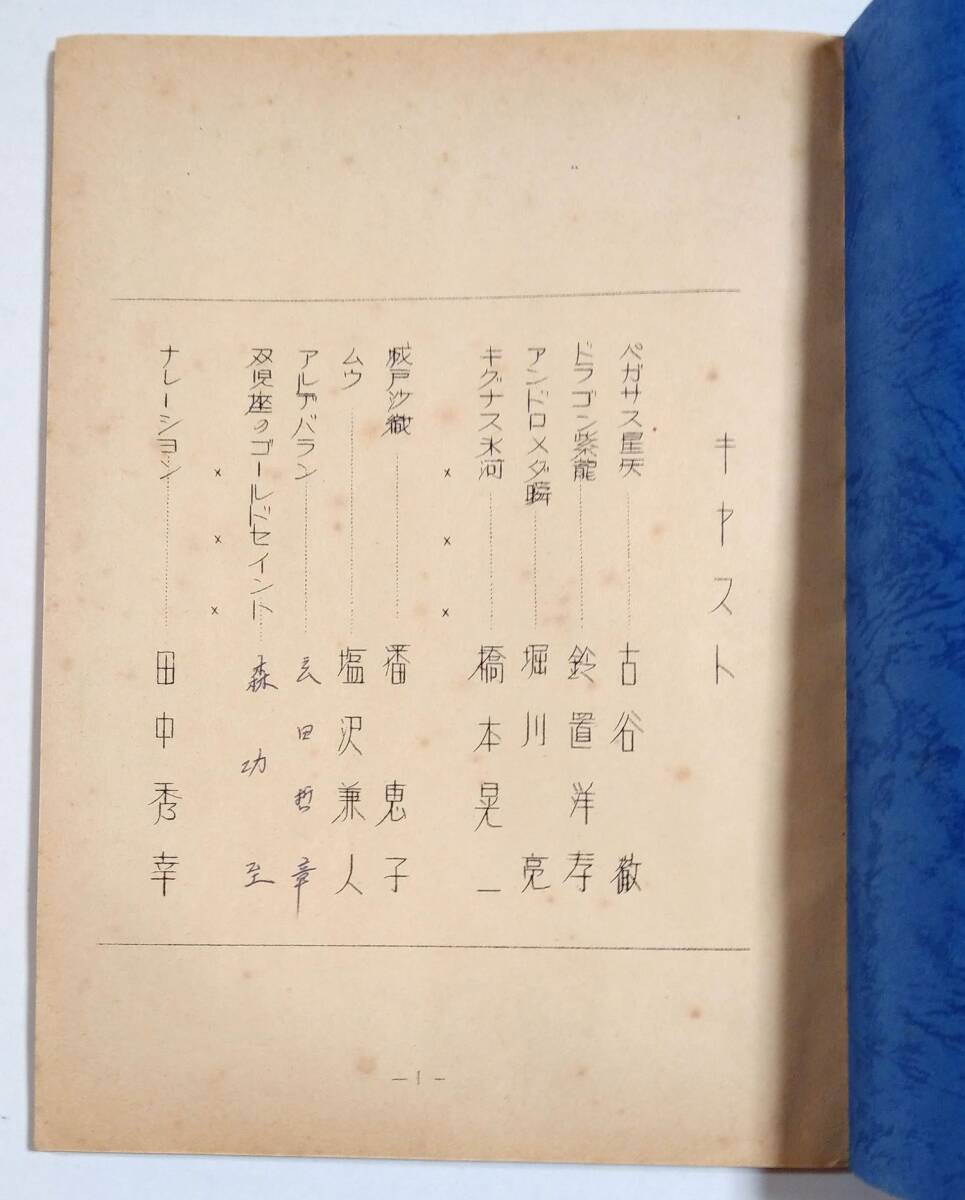 キャスト
ペガサス星矢…………古谷　徹
ドラゴン紫龍…………鈴置洋孝
アンドロメダ瞬…………堀川　亮
キグナス氷河…………橋本晃一
×　×　×
城戸沙織…………潘　恵子
ムウ…………塩沢兼人
アルデバラン…………玄田哲章
双児座のゴールドセイント…森功至
×　×　×
ナレーション…………田中秀幸
－1－